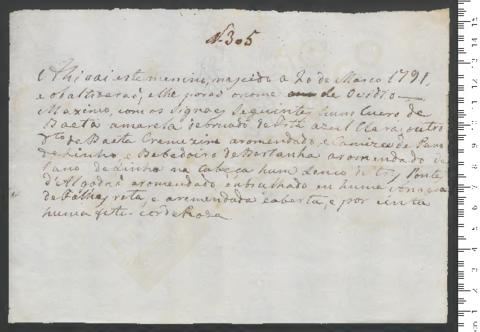 N. 305
Ahi vai este menino, nascido a 20 de Março 1791,
e o baltizarão, e lhe porão o nome de Ovidio
Maximo, com os signaes seguintes hum Cueiro de
Baeta amarela debruado de fita azul Clara, outro
dto de Baeta Cramezim aromendado e Camiza de Pano
de Linho, e Bebedoiro de Bertanha aromendado de
Pano de Linho na cabeça hum Lenço de tres Ponte
d'Algodão aromendado embrulhado em huma
de Folhas rota, e aremendada e aberta, e por cinta
huma fita cor de Roza